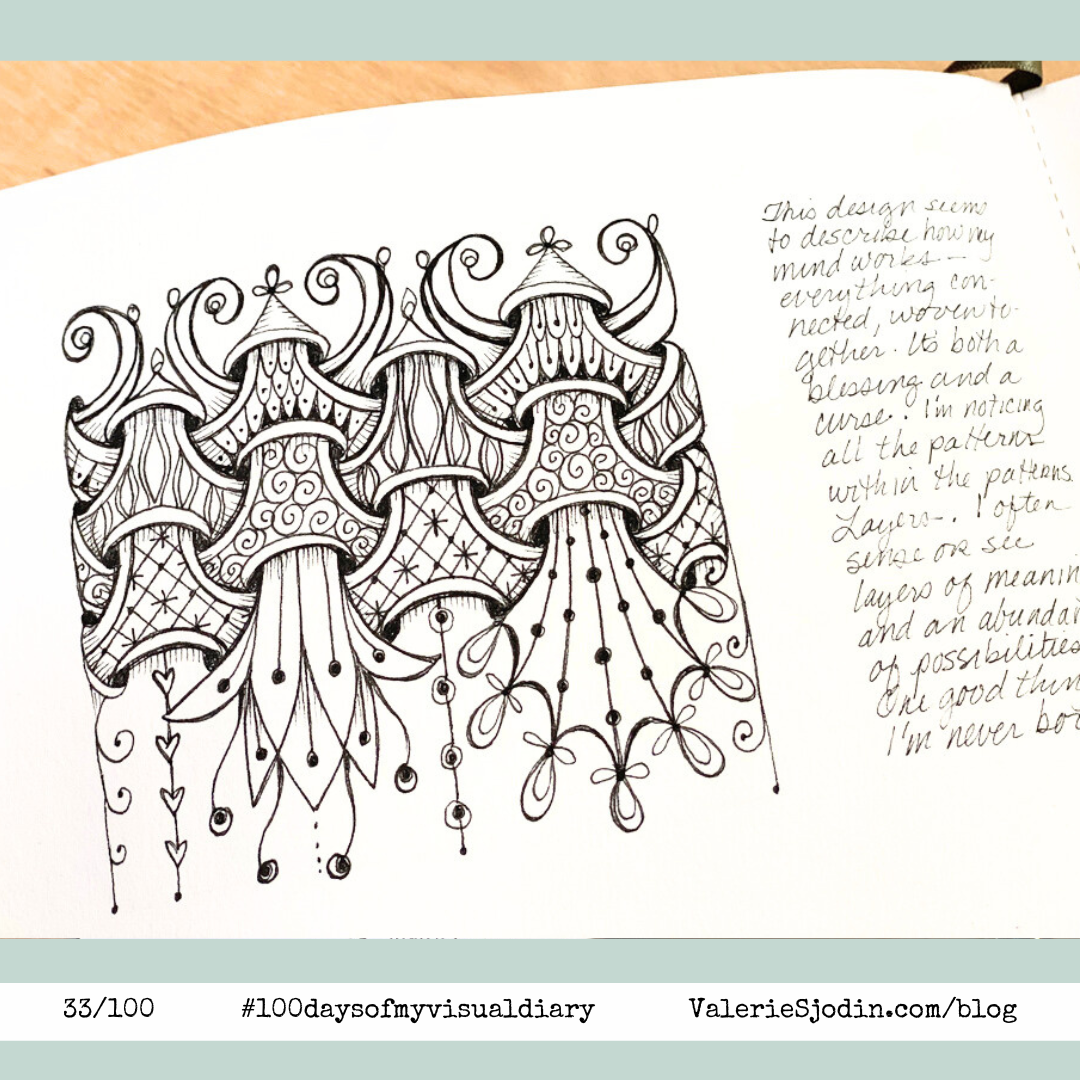 This design seems
to describe how my
mind works —
everything con-
nected, woven to-
gether. Its both a
blessing and a
curse. I'm noticing
all the patterns
within the patterns.
Layers-. I often
sense or see
layers of meanin
and an abundan
of possibilities
One good thin
I'm never bor
33/100 #100daysofmyvisualdiary ValerieSjodin.com/blog